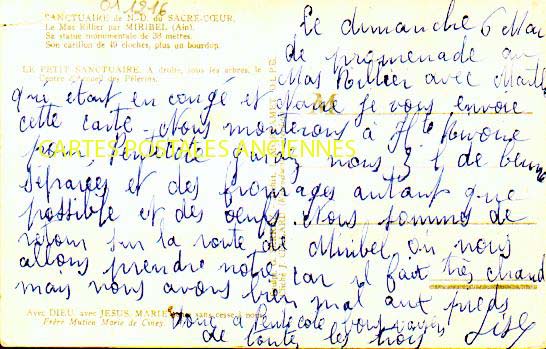 011816
SANCTUAIRE de N.-D. du SACRE-CŒUR.
Le Mas Rillier par MIRIBEL (Ain).
Sa statue monumentale de 38 mètres.
Son carillon de 49 cloches, plus un bourdon.
LE PETIT SANCTUAIRE. A droite, sous les arbres, le
Centre d'Accueil des Pèlerins.
Le dimanche 6 Mai
de promenade au
Mas Rillier avec
qui était en congé et je vous envoie
cette carte. Nous monterons à
pour Pentecôte gardez nous 3 l de beurre
séparées et des fromages autant que
possible et des œufs. Nous sommes de
retour sur la route de Miribel où nous
allons prendre notre car il fait très chaud
mais nous avons bien mal aux pieds
Avec DIEU, avec JESUS, MARIE, sans cesse
Frère Mutien Marie de Ciney.
Donc à Pentecôte bons baisers
de toutes les trois Lise
CARTES POSTALES ANCIENNES